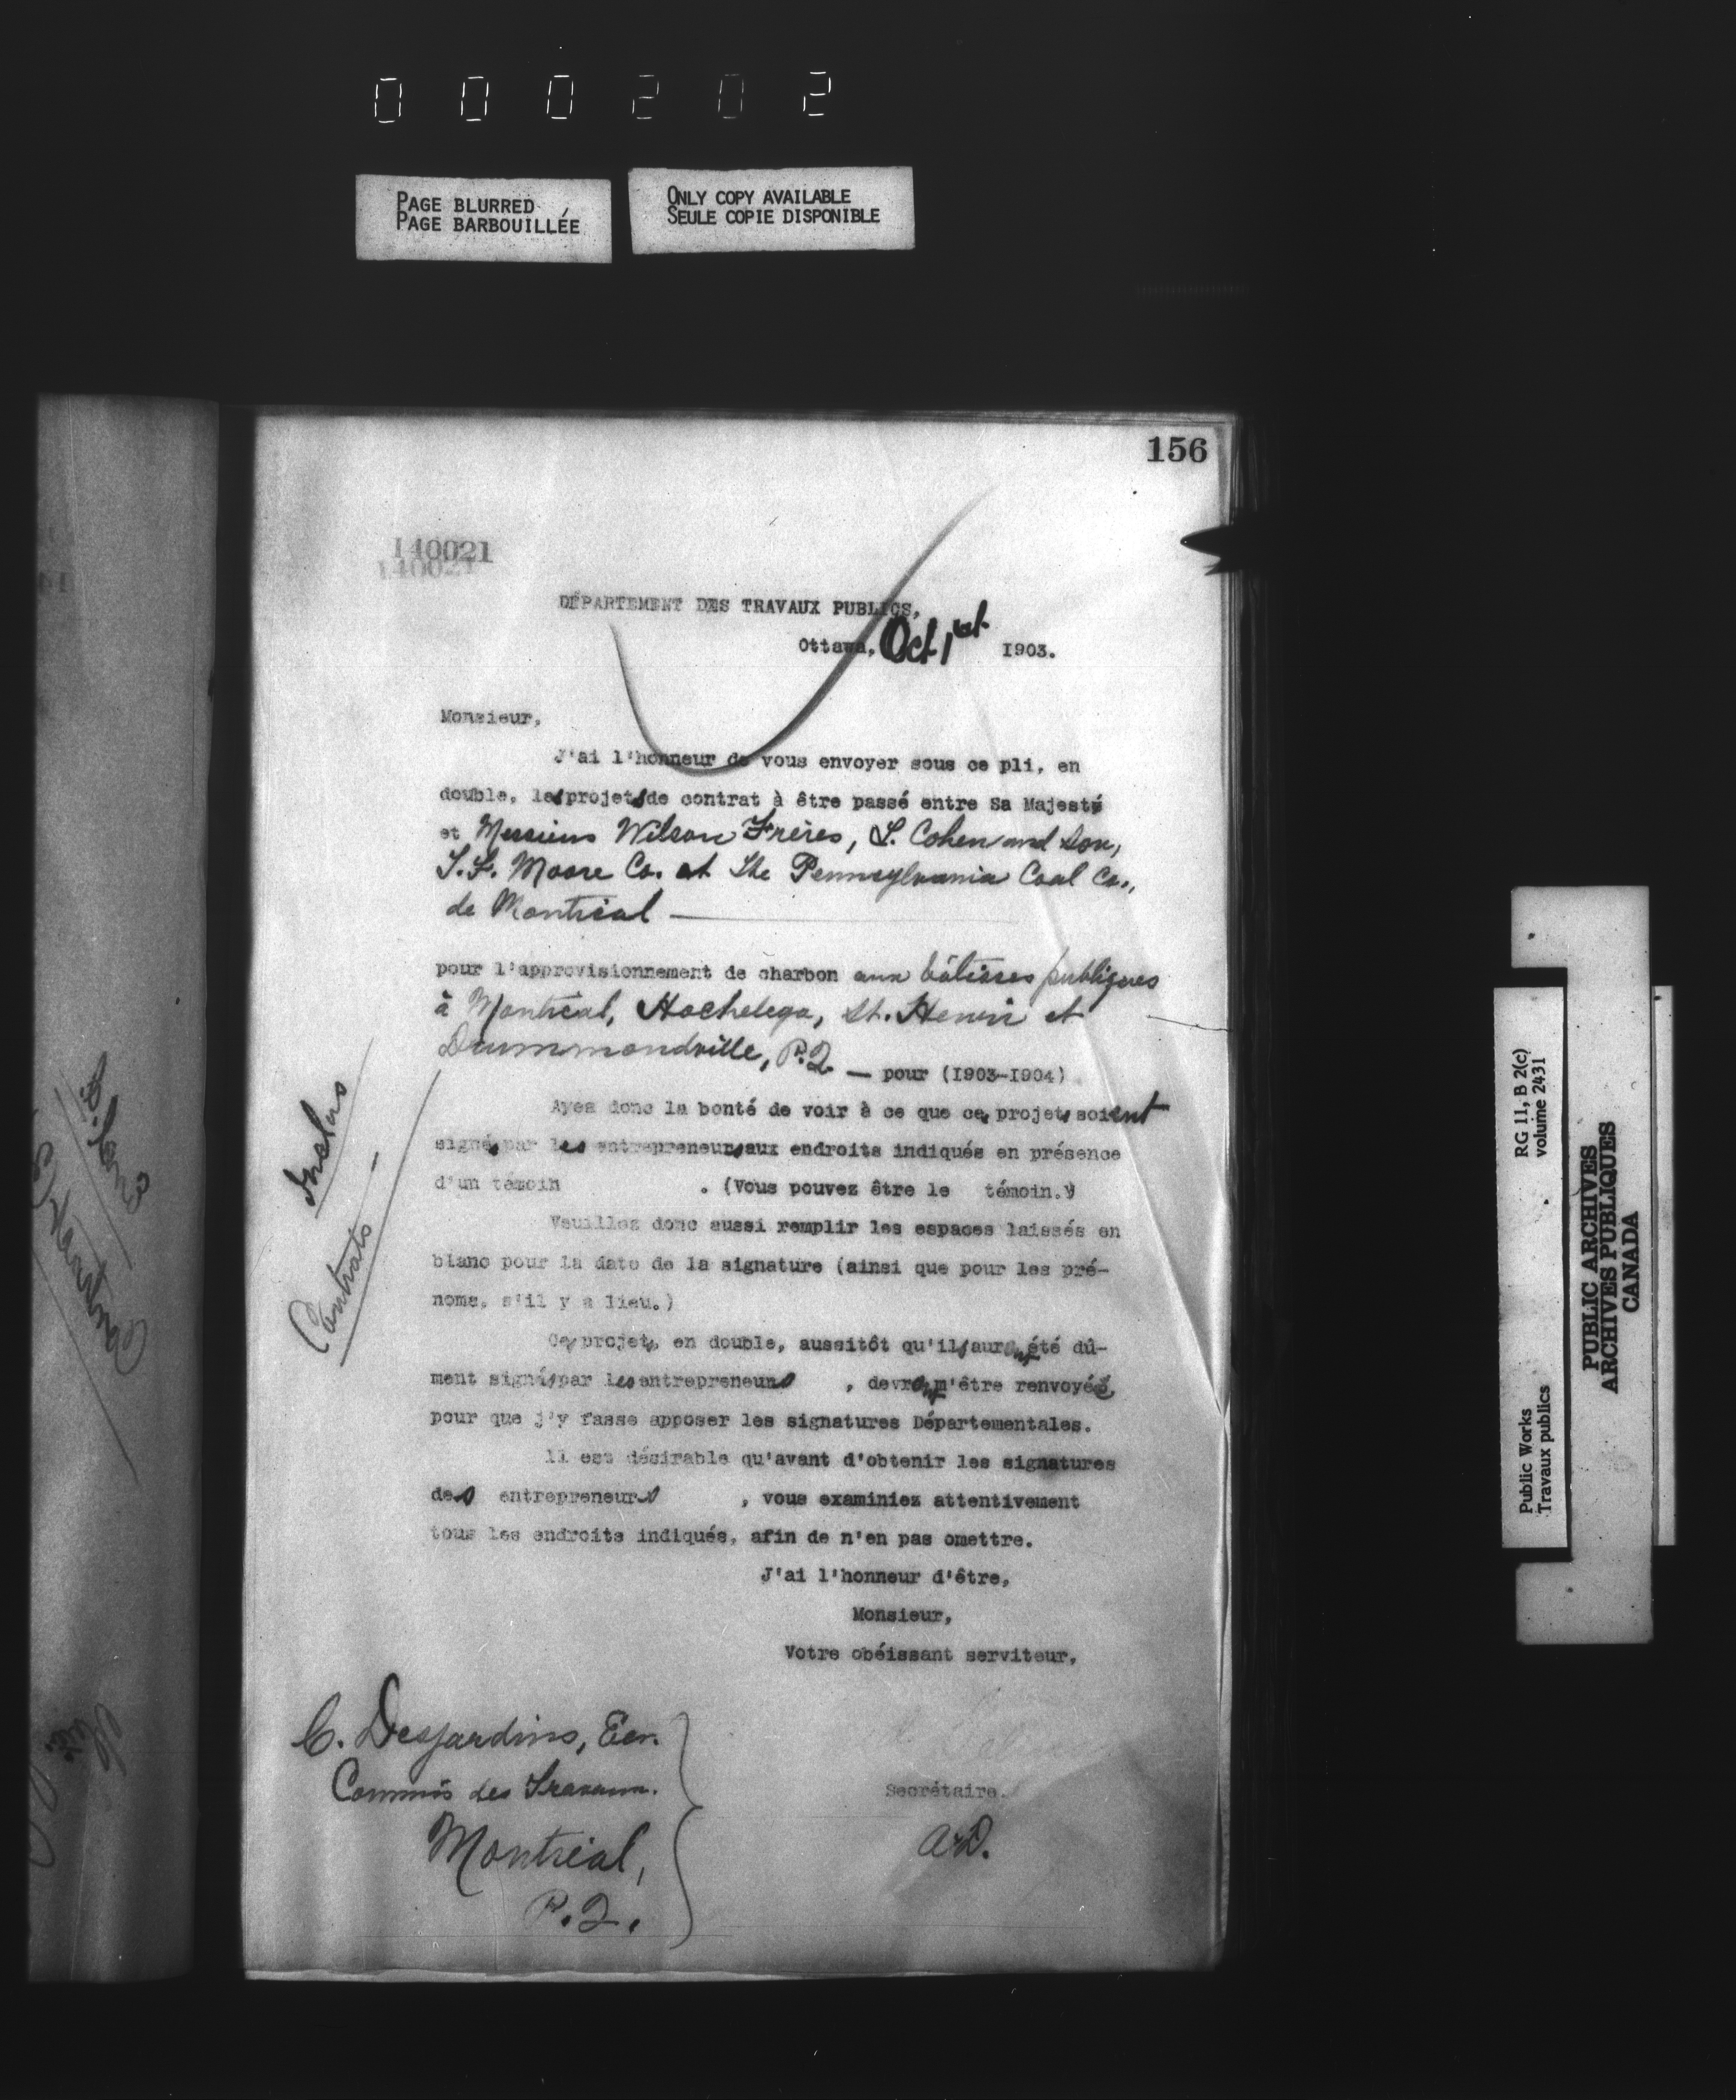 000202
PAGE BLURRED
PAGE BARBOUILLÉE
ONLY COPY AVAILABLE
SEULE COPIE DISPONIBLE
156
140021
140021
DÉPARTEMENT DES TRAVAUX PUBLICS,
Ottawa, Oct 1st 1903.
Monsieur,
J'ai l'honneur de vous envoyer sous ce pli, en
double, les projets de contrat à être passé entre Sa Majesté
et Messieurs Wilson Frères, L. Cohen and Son,
J. F. Moore Co. et The Pennsylvania Coal Co.,
de Montréal
pour l'approvisionnement de charbon aux bâtisses publiques
à Montréal, Hochelega, St. Henri et
Drummondville, P.Q. — pour (1903-1904)
Ayez donc la bonté de voir à ce que ces projets soient
signés par les entrepreneurs aux endroits indiqués en présence
d'un témoin . (Vous pouvez être le témoin.)
Veuillez donc aussi remplir les espaces laissés en
blanc pour la date de la signature (ainsi que pour les pré-
noms, s'il y a lieu.)
Ces projets, en double, aussitôt qu'ils auront été dû-
ment signés par les entrepreneurs , devront m'être renvoyés,
pour que j'y fasse apposer les signatures Départementales.
Il est désirable qu'avant d'obtenir les signatures
des entrepreneurs , vous examiniez attentivement
tous les endroits indiqués, afin de n'en pas omettre.
J'ai l'honneur d'être,
Monsieur,
Votre obéissant serviteur,
Secrétaire.
A.D.
C. Desjardins, Ecr.
Commis des Travaux.
Montréal,
P.Q.
Contrats
RG 11, B 2(c)
volume 2431
Public Works
Travaux publics
PUBLIC ARCHIVES
ARCHIVES PUBLIQUES
CANADA